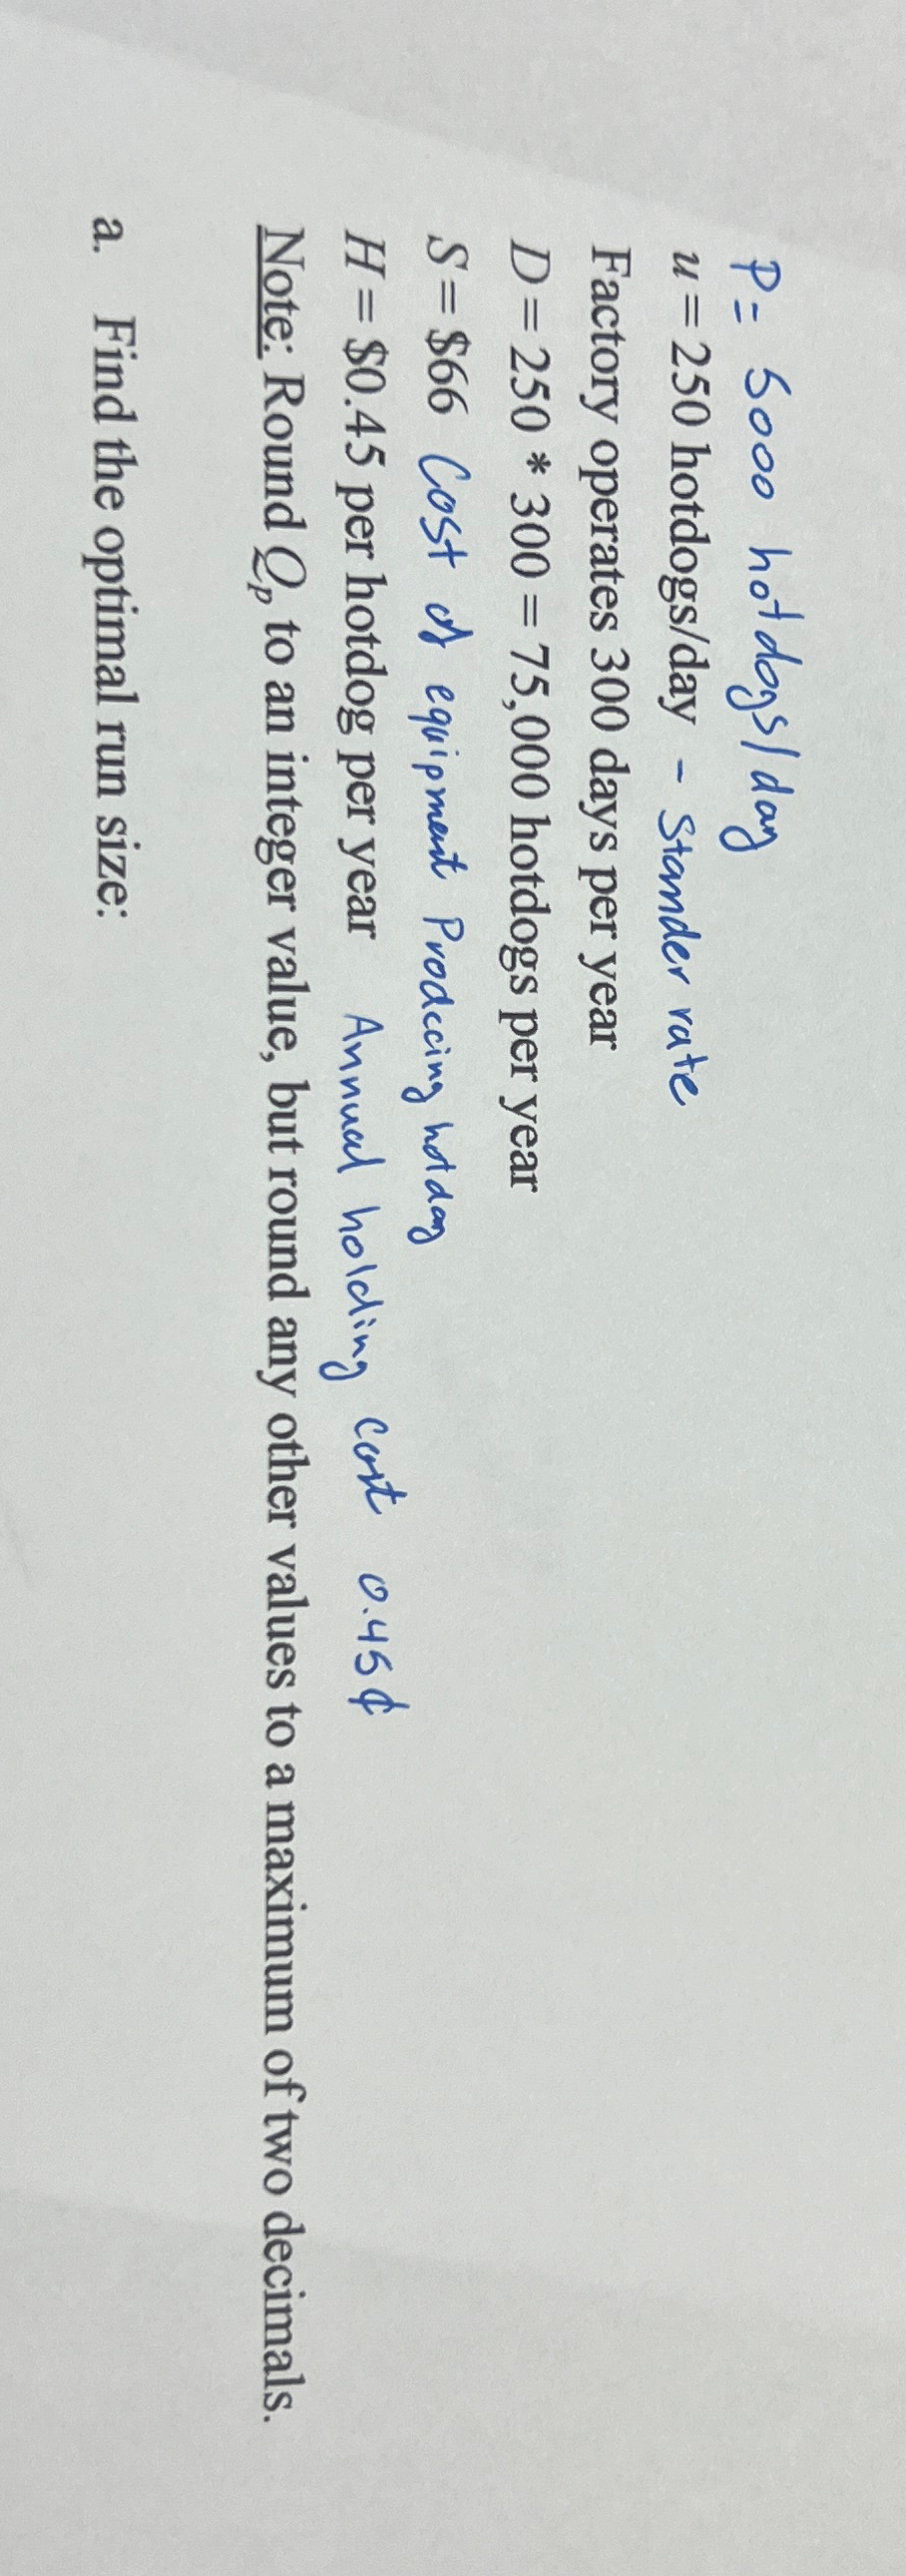 P = 5000 hotdogs/day
u = 250 hotdogs/day - Stander rate
Factory operates 300 days per year
D = 250 * 300 = 75,000 hotdogs per year
S = $66 Cost of equipment Producing hotdog
H = $0.45 per hotdog per year Annual holding cost 0.45¢
Note: Round Qp to an integer value, but round any other values to a maximum of two decimals.
a. Find the optimal run size: